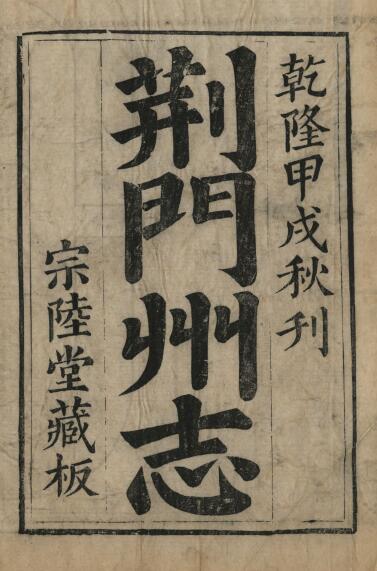 乾隆甲戌秋刊
荆門州志
宗陸堂藏板